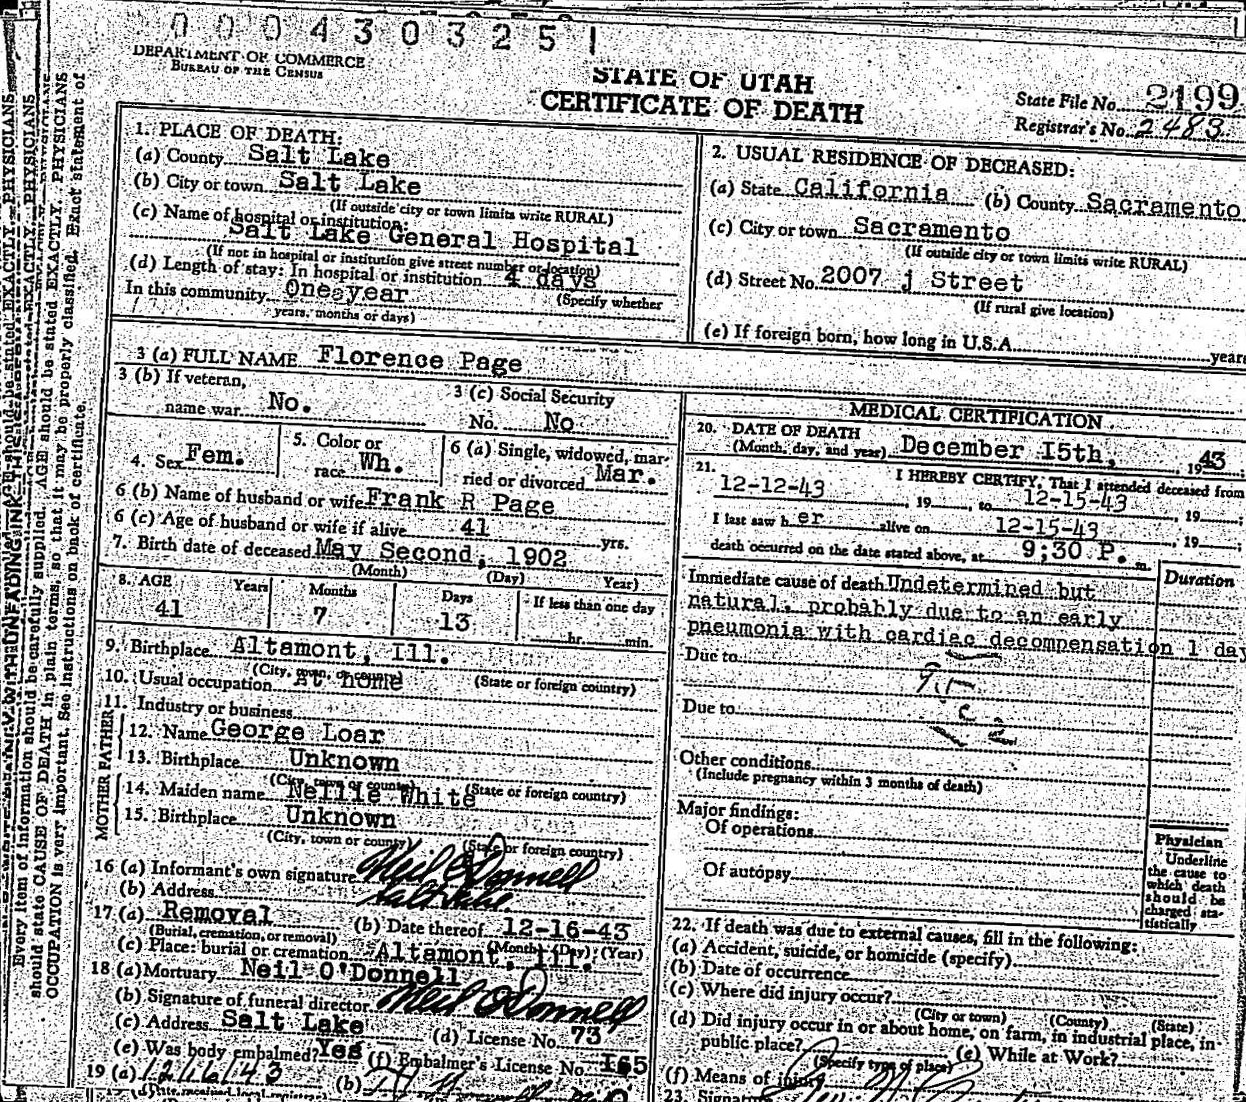 000430325
DEPARTMENT OF COMMERCE
BUREAU OF THE CENSUS
STATE OF UTAH
CERTIFICATE OF DEATH
State File No. 2199
Registrar's No. 2483
1. PLACE OF DEATH:
(a) County Salt Lake
(b) City or town Salt Lake
(If outside city or town limits write RURAL)
(c) Name of hospital or institution:
Salt Lake General Hospital
(If not in hospital or institution give street number or location)
(d) Length of stay: In hospital or institution 4 days
In this community One year (Specify whether
years, months or days)
2. USUAL RESIDENCE OF DECEASED:
(a) State California (b) County Sacramento
(c) City or town Sacramento
(If outside city or town limits write RURAL)
(d) Street No. 2007 j Street
(If rural give location)
(e) If foreign born, how long in U.S.A. years
3 (a) FULL NAME Florence Page
3 (b) If veteran,
name war No.
3 (c) Social Security
No. No
4. Sex Fem.
5. Color or
race Wh.
6 (a) Single, widowed, mar-
ried or divorced Mar.
6 (b) Name of husband or wife Frank R Page
6 (c) Age of husband or wife if alive 41 yrs.
7. Birth date of deceased May Second, 1902
(Month) (Day) Year)
8. AGE Years Months Days If less than one day
41 7 13 hr. min.
9. Birthplace Altamont, Ill.
(City, town, or county) (State or foreign country)
10. Usual occupation At home
11. Industry or business
FATHER
12. Name George Loar
13. Birthplace Unknown
(City, town or county) (State or foreign country)
MOTHER
14. Maiden name Nellie White
15. Birthplace Unknown
(City, town or county) (State or foreign country)
16 (a) Informant's own signature Neil O'Donnell
(b) Address Salt Lake
17. (a) Removal (b) Date thereof 12-16-43
(Burial, cremation, or removal) (Month) (Day) (Year)
(c) Place: burial or cremation Altamont, Ill.
18 (a) Mortuary Neil O'Donnell
(b) Signature of funeral director Neil O'Donnell
(c) Address Salt Lake (d) License No. 73
(e) Was body embalmed? Yes (f) Embalmer's License No. I65
19 (a) 12/16/43 (b)
MEDICAL CERTIFICATION
20. DATE OF DEATH
(Month, day, and year) December I5th, 1943
21. I HEREBY CERTIFY, That I attended deceased from
12-12-43, 19 , to 12-15-43, 19 ;
I last saw her alive on 12-15-43, 19 ;
death occurred on the date stated above, at 9;30 P. m.
Immediate cause of death Undetermined but Duration
natural, probably due to an early
pneumonia with cardiac decompensation 1 day
Due to
Due to
Other conditions
(Include pregnancy within 3 months of death)
Major findings:
Of operations
Of autopsy
Physician
Underline
the cause to
which death
should be
charged sta-
tistically
22. If death was due to external causes, fill in the following:
(a) Accident, suicide, or homicide (specify)
(b) Date of occurrence
(c) Where did injury occur?
(City or town) (County) (State)
(d) Did injury occur in or about home, on farm, in industrial place, in
public place? (e) While at Work?
(Specify type of place)
(f) Means of injury
23. Signature
Every item of information should be carefully supplied. AGE should be stated EXACTLY. PHYSICIANS
should state CAUSE OF DEATH in plain terms, so that it may be properly classified. Exact statement of
OCCUPATION is very important. See instructions on back of certificate.